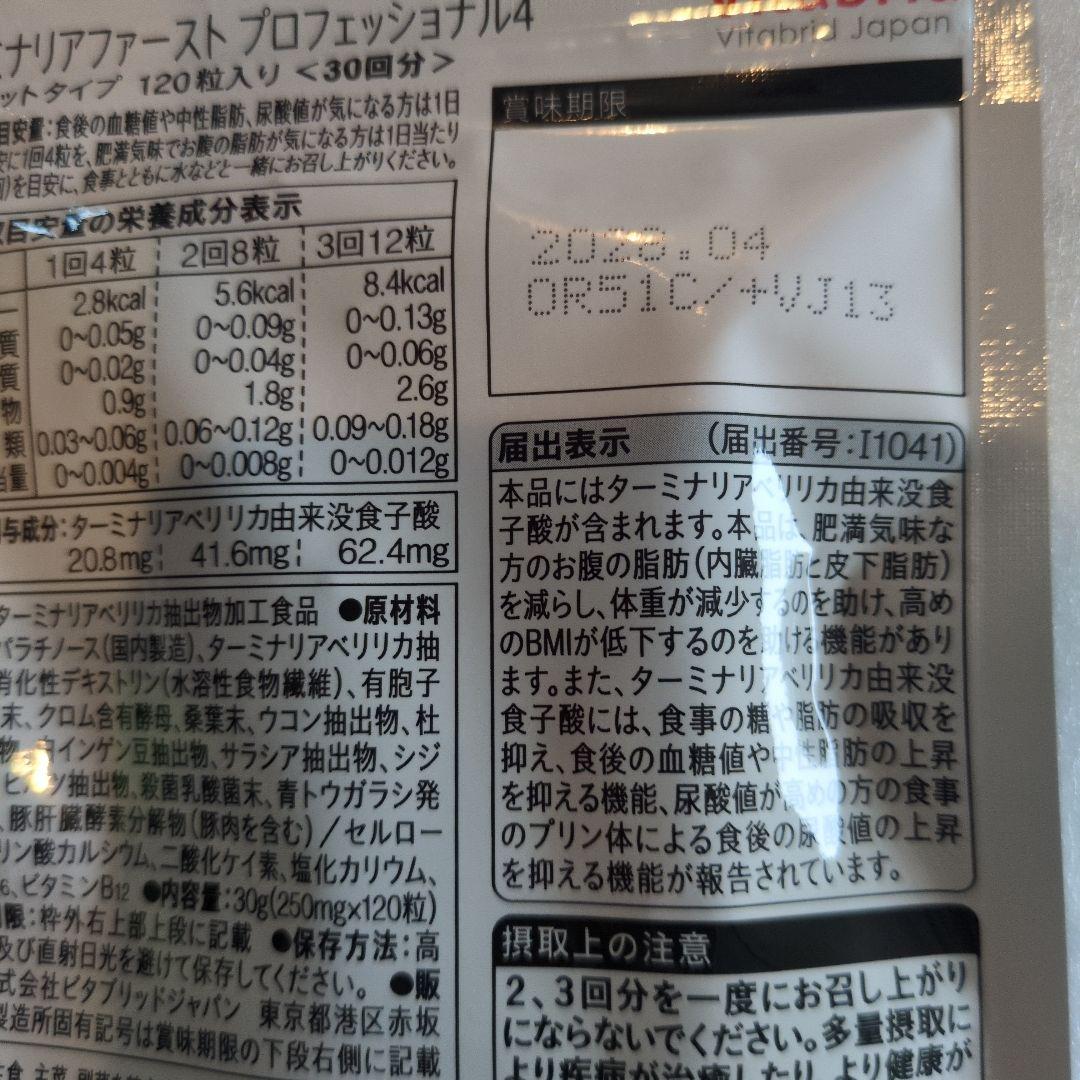 ナリアファースト プロフェッショナル4
ットタイプ 120粒入り＜30回分＞
目安量：食後の血糖値や中性脂肪、尿酸値が気になる方は1日
に1回4粒を、肥満気味でお腹の脂肪が気になる方は1日当たり
を目安に、食事とともに水などと一緒にお召し上がりください。
目安量の栄養成分表示
1回4粒 2回8粒 3回12粒
ー 2.8kcal 5.6kcal 8.4kcal
質 0~0.05g 0~0.09g 0~0.13g
質 0~0.02g 0~0.04g 0~0.06g
物 0.9g 1.8g 2.6g
類 0.03~0.06g 0.06~0.12g 0.09~0.18g
当量 0~0.004g 0~0.008g 0~0.012g
与成分：ターミナリアベリリカ由来没食子酸
20.8mg 41.6mg 62.4mg
ターミナリアベリリカ抽出物加工食品 ●原材料
パラチノース(国内製造)、ターミナリアベリリカ抽
消化性デキストリン(水溶性食物繊維)、有胞子
末、クロム含有酵母、桑葉末、ウコン抽出物、杜
物、白インゲン豆抽出物、サラシア抽出物、シジ
抽出物、殺菌乳酸菌末、青トウガラシ発
、豚肝臓酵素分解物(豚肉を含む)／セルロー
リン酸カルシウム、二酸化ケイ素、塩化カリウム、
B6、ビタミンB12 ●内容量：30g(250mg×120粒)
限：枠外右上部上段に記載 ●保存方法：高
及び直射日光を避けて保存してください。 ●販
式会社ビタブリッドジャパン 東京都港区赤坂
製造所固有記号は賞味期限の下段右側に記載
Vitabrid Japan
賞味期限
2028.04
OR51C/+VJ13
届出表示 (届出番号：I1041)
本品にはターミナリアベリリカ由来没食
子酸が含まれます。本品は、肥満気味な
方のお腹の脂肪(内臓脂肪と皮下脂肪)
を減らし、体重が減少するのを助け、高め
のBMIが低下するのを助ける機能があり
ます。また、ターミナリアベリリカ由来没
食子酸には、食事の糖や脂肪の吸収を
抑え、食後の血糖値や中性脂肪の上昇
を抑える機能、尿酸値が高めの方の食事
のプリン体による食後の尿酸値の上昇
を抑える機能が報告されています。
摂取上の注意
2、3回分を一度にお召し上がり
にならないでください。多量摂取に
より疾病が治癒したり、より健康が